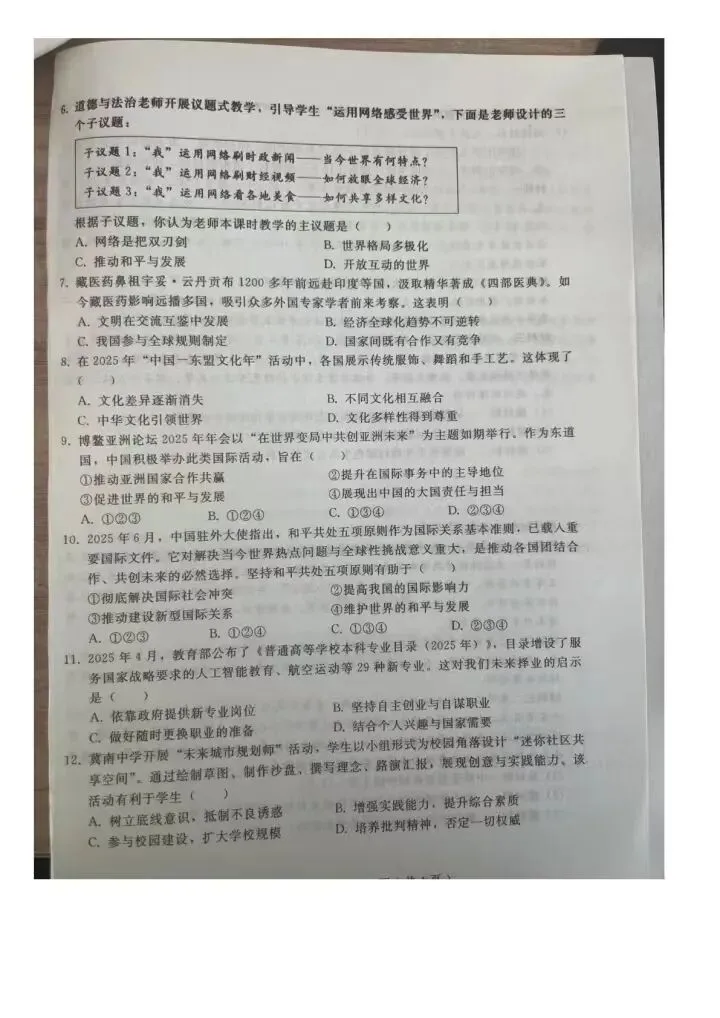 6. 道德与法治老师开展议题式教学，引导学生“运用网络感受世界”，下面是老师设计的三
个子议题：
子议题 1：“我”运用网络刷时政新闻——当今世界有何特点？
子议题 2：“我”运用网络刷财经视频——如何放眼全球经济？
子议题 3：“我”运用网络看各地美食——如何共享多样文化？
根据子议题，你认为老师本课时教学的主议题是（　　）
A. 网络是把双刃剑　B. 世界格局多极化
C. 推动和平与发展　D. 开放互动的世界
7. 藏医药鼻祖宇妥·云丹贡布 1200 多年前远赴印度等国，汲取精华著成《四部医典》。如
今藏医药影响远播多国，吸引众多外国专家学者前来考察。这表明（　　）
A. 文明在交流互鉴中发展　B. 经济全球化趋势不可逆转
C. 我国参与全球规则制定　D. 国家间既有合作又有竞争
8. 在 2025 年“中国—东盟文化年”活动中，各国展示传统服饰、舞蹈和手工艺。这体现了
（　　）
A. 文化差异逐渐消失　B. 不同文化相互融合
C. 中华文化引领世界　D. 文化多样性得到尊重
9. 博鳌亚洲论坛 2025 年年会以“在世界变局中共创亚洲未来”为主题如期举行。作为东道
国，中国积极举办此类国际活动，旨在（　　）
①推动亚洲国家合作共赢　②提升在国际事务中的主导地位
③促进世界的和平与发展　④展现出中国的大国责任与担当
A. ①②③　B. ①②④　C. ①③④　D. ②③④
10. 2025 年 6 月，中国驻外大使指出，和平共处五项原则作为国际关系基本准则，已载入重
要国际文件。它对解决当今世界热点问题与全球性挑战意义重大，是推动各国团结合
作、共创未来的必然选择。坚持和平共处五项原则有助于（　　）
①彻底解决国际社会冲突　②提高我国的国际影响力
③推动建设新型国际关系　④维护世界的和平与发展
A. ①②③　B. ①②④　C. ①③④　D. ②③④
11. 2025 年 4 月，教育部公布了《普通高等学校本科专业目录（2025 年）》，目录增设了服
务国家战略要求的人工智能教育、航空运动等 29 种新专业。这对我们未来择业的启示
是（　　）
A. 依靠政府提供新专业岗位　B. 坚持自主创业与自谋职业
C. 做好随时更换职业的准备　D. 结合个人兴趣与国家需要
12. 冀南中学开展“未来城市规划师”活动，学生以小组形式为校园角落设计“迷你社区共
享空间”。通过绘制草图、制作沙盘、撰写理念、路演汇报，展现创意与实践能力。该
活动有利于学生（　　）
A. 树立底线意识，抵制不良诱惑　B. 增强实践能力，提升综合素质
C. 参与校园建设，扩大学校规模　D. 培养批判精神，否定一切权威